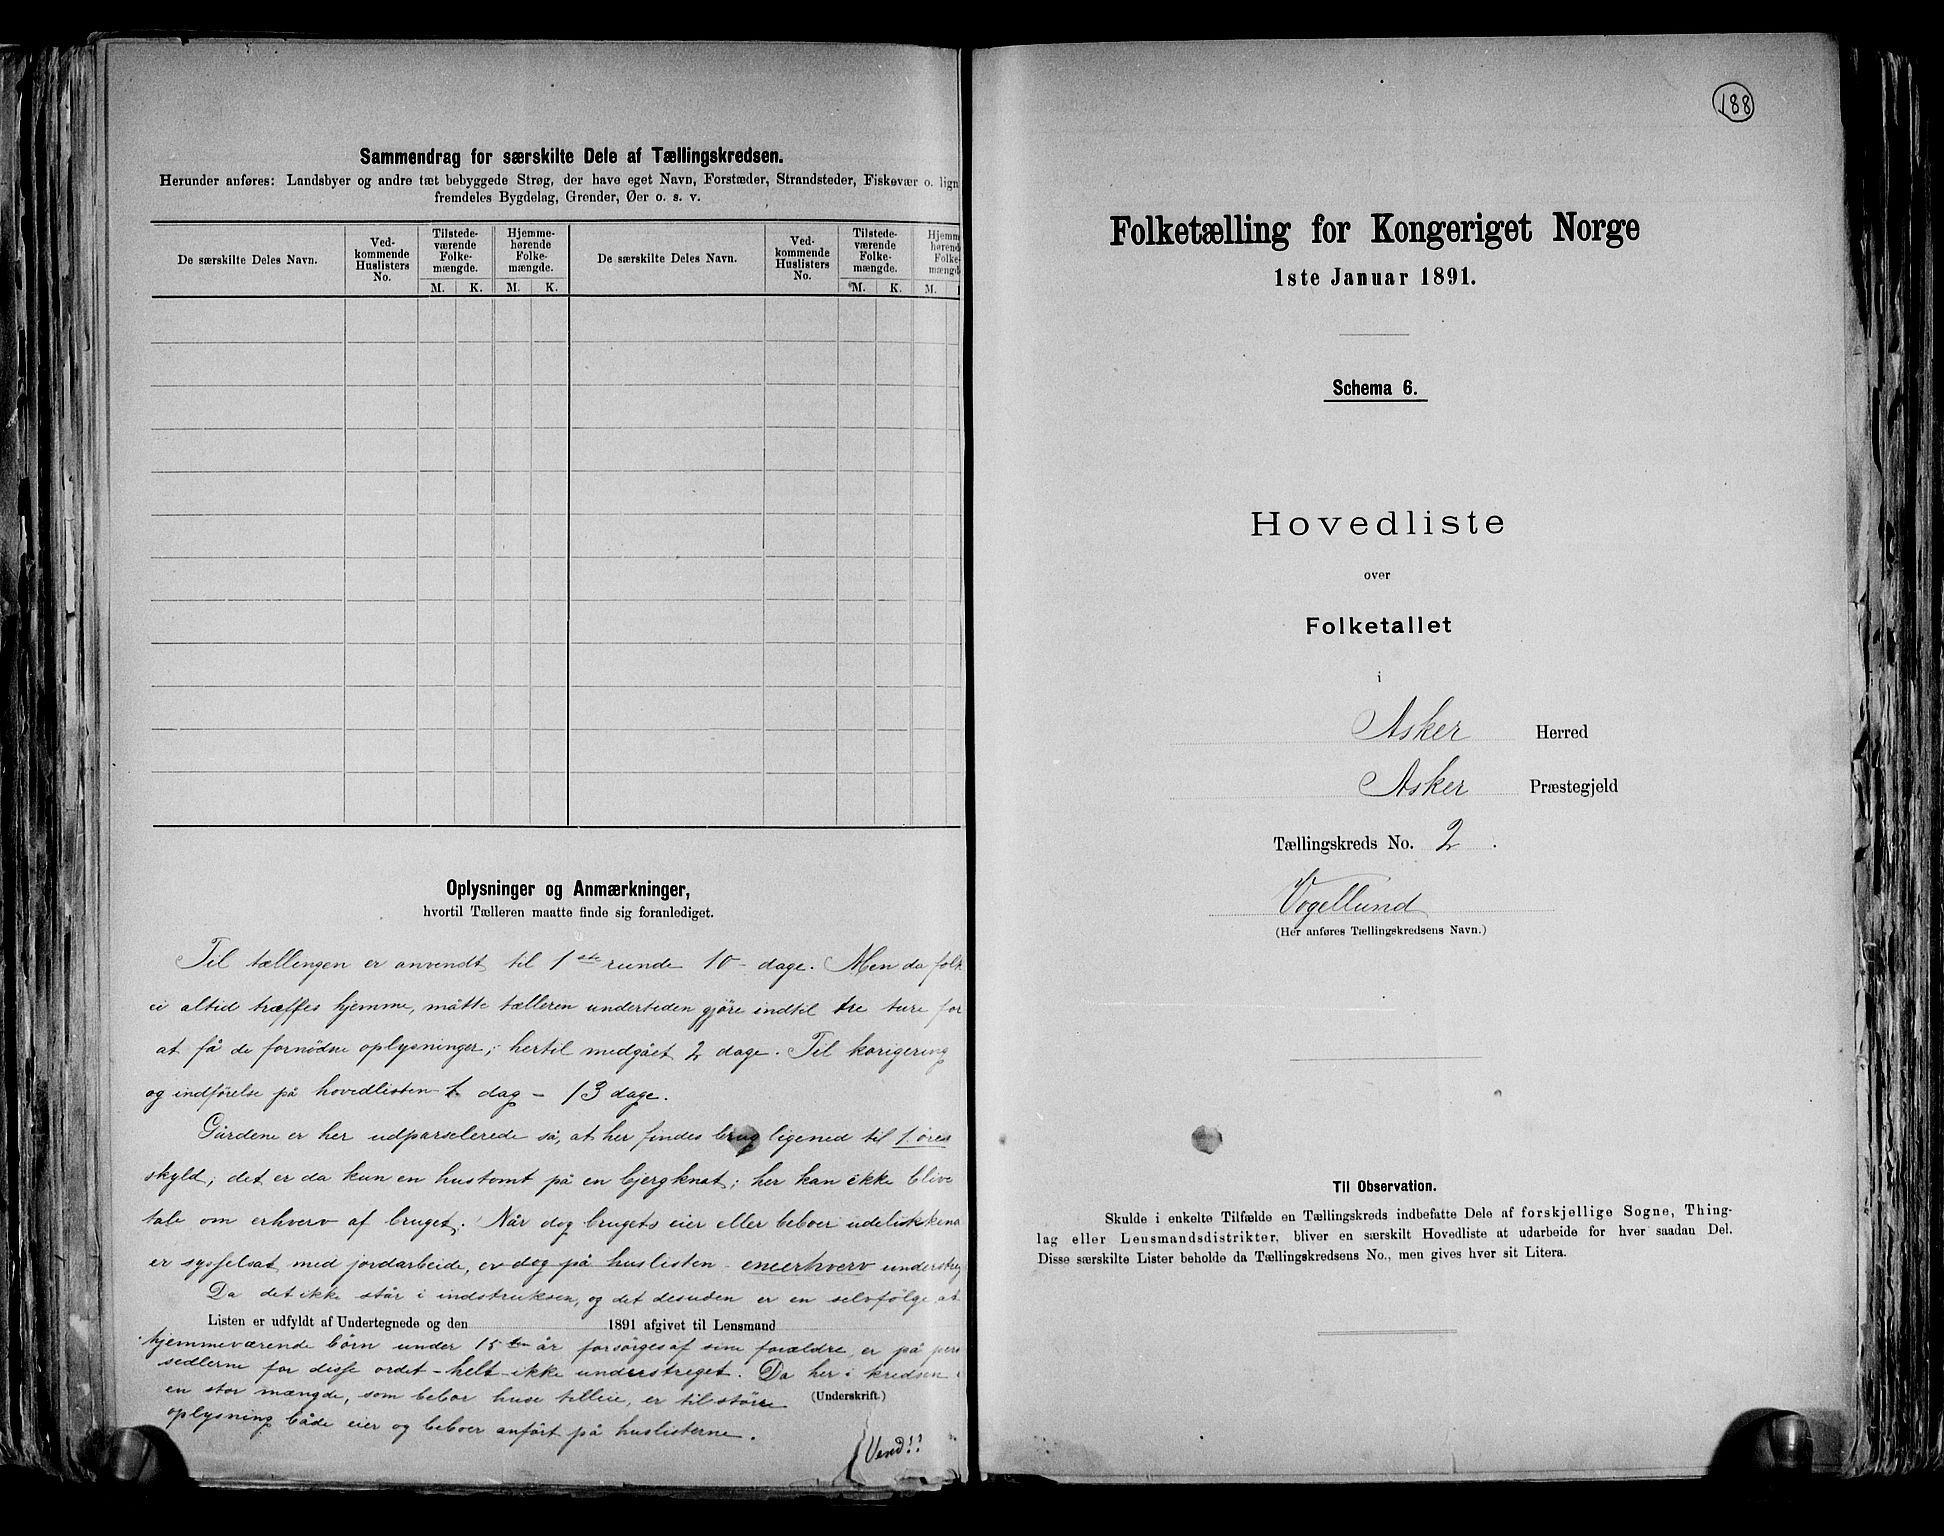 Sammendrag for særskilte Dele af Tællingskredsen.
Herunder anføres: Landsbyer og andre tæt bebyggede Strøg, der have eget Navn, Forstæder, Strandsteder, Fiskevær o. lign
fremdeles Bygdelag, Grender, Øer o. s. v.
De særskilte Deles Navn.
Ved-
kommende
Huslisters
No.
Tilstede-
værende
Folke-
mængde.
Hjemme-
hørende
Folke-
mængde.
De særskilte Deles Navn.
Ved-
kommende
Huslisters
No.
Tilstede-
værende
Folke-
mængde.
Hjemm
hørend
Folke-
mængd
M. K. M. K. M. K. M.
Oplysninger og Anmærkninger,
hvortil Tælleren maatte finde sig foranlediget.
Til tællingen er anvendt til 1ste runde 10 dage. Men da folk
ei altid træffes hjemme, måtte tælleren undertiden gjöre indtil tre ture for
at få de fornödne oplysninger; hertil medgået 2 dage. Til korigering
og indförelse på hovedlisten 1 dag – 13 dage.
Gårdene er her udparselerede så, at her findes brug ligened til 1 öres
skyld; det er da kun en hustomt på en bjergknat; her kan ikke blive
tale om erhverv af bruget. Når dog brugets eier eller beboer udelukkena
er sysselsat med jordarbeide, er dog på huslisten eneerhverv understreg
Da det ikke står i indstruksen, og det desuden er en selvfölge, at
Listen er udfyldt af Undertegnede og den 1891 afgivet til Lensmand
hjemmeværende börn under 15 år forsörges af sine forældre, er på pers
sedlerne for disse ordet – helt – ikke understreget. Da her i kredsen
en stor mængde, som bebor huse tilleie, er til större
(Underskrift.)
oplysning både eier og beboer anfört på huslisterne.
Vend!!
188
Folketælling for Kongeriget Norge
1ste Januar 1891.
Schema 6.
Hovedliste
over
Folketallet
i
Asker Herred
Asker Præstegjeld
Tællingskreds No. 2.
Vogellund
(Her anføres Tællingskredsens Navn.)
Til Observation.
Skulde i enkelte Tilfælde en Tællingskreds indbefatte Dele af forskjellige Sogne, Thing-
lag eller Lensmandsdistrikter, bliver en særskilt Hovedliste at udarbeide for hver saadan Del.
Disse særskilte Lister beholde da Tællingskredsens No., men gives hver sit Litera.